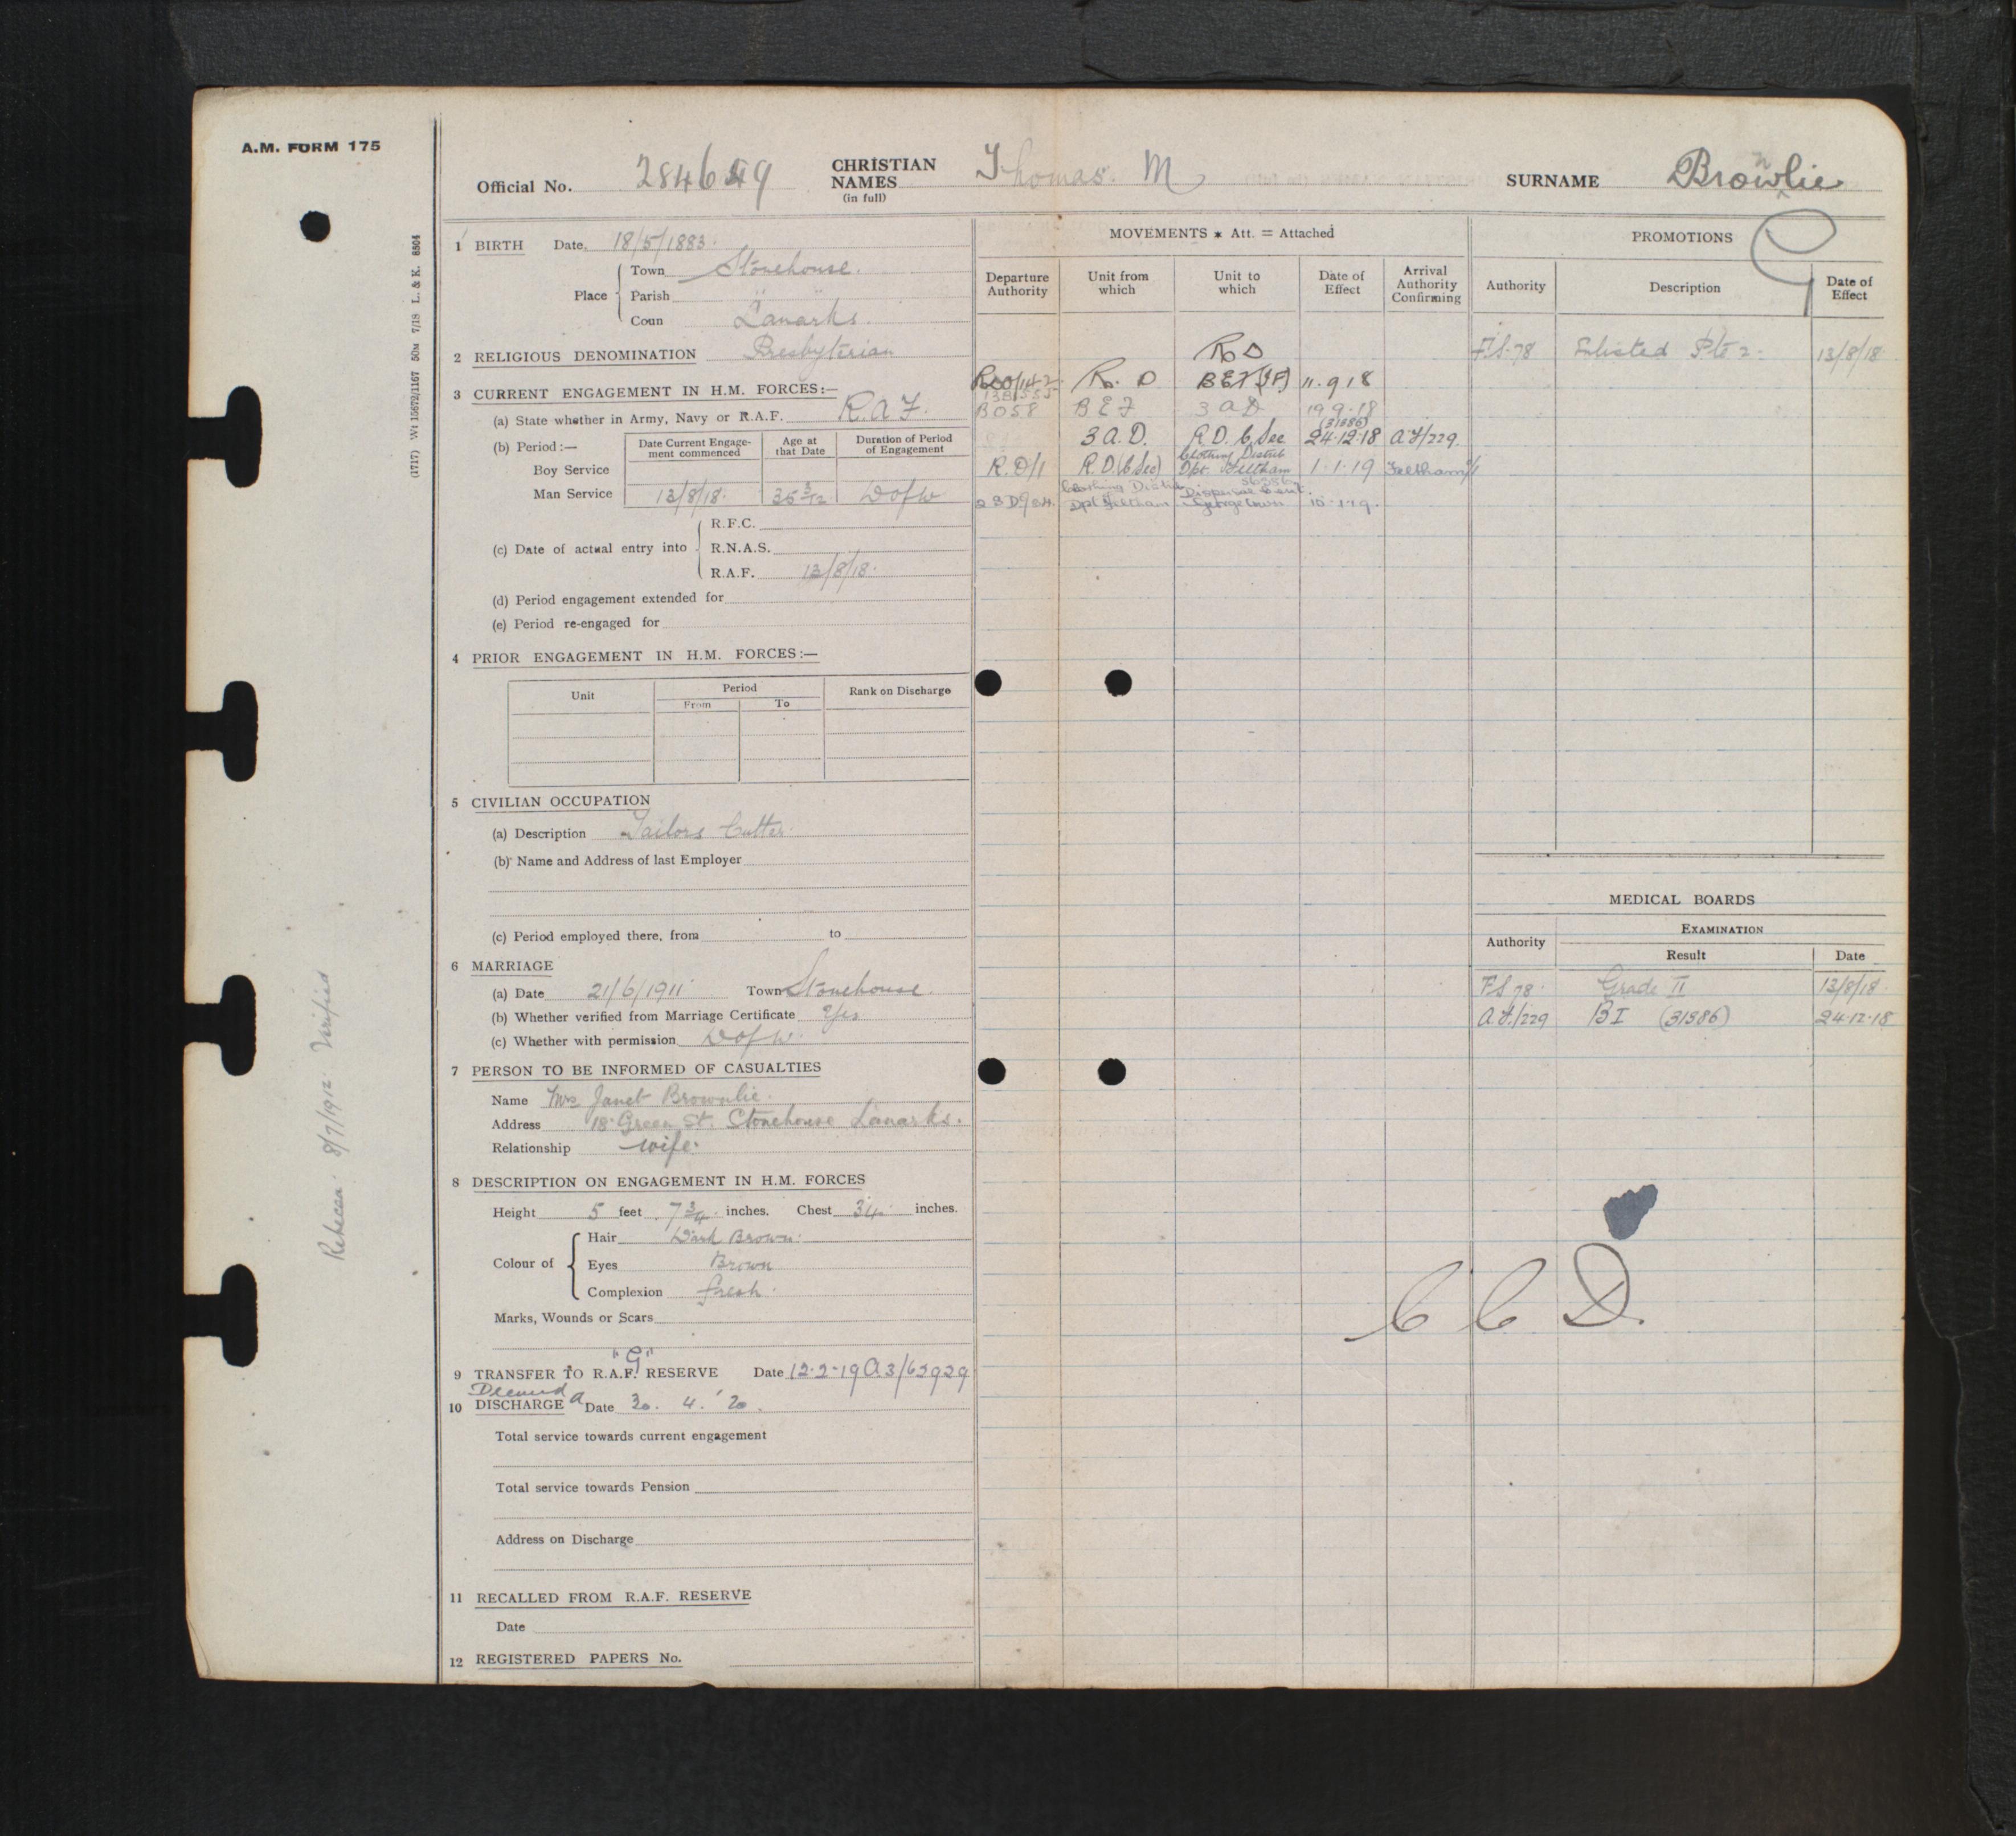 A.M. FORM 175
(1717) Wt 15672/1167 50M 7/18 L. & K. 8804
Rebecca 8/7/1912 Verified
Official No. 284649 CHRISTIAN NAMES (in full) Thomas. M SURNAME Brownlie
1 BIRTH Date 18/5/1883.
Place Town Stonehouse.
Parish "
Coun Lanarks.
2 RELIGIOUS DENOMINATION Presbyterian
3 CURRENT ENGAGEMENT IN H.M. FORCES:—
(a) State whether in Army, Navy or R.A.F. R.A.F.
(b) Period:— Date Current Engagement commenced Age at that Date Duration of Period of Engagement
Boy Service
Man Service 13/8/18. 35 3/12 D of W
(c) Date of actual entry into R.F.C.
R.N.A.S.
R.A.F. 13/8/18.
(d) Period engagement extended for
(e) Period re-engaged for
4 PRIOR ENGAGEMENT IN H.M. FORCES:—
Unit Period Rank on Discharge
From To
5 CIVILIAN OCCUPATION
(a) Description Tailors Cutter.
(b) Name and Address of last Employer
(c) Period employed there, from to
6 MARRIAGE
(a) Date 21/6/1911 Town Stonehouse.
(b) Whether verified from Marriage Certificate Yes
(c) Whether with permission D of W.
7 PERSON TO BE INFORMED OF CASUALTIES
Name Mrs Janet Brownlie.
Address 18. Green St. Stonehouse Lanarks.
Relationship wife.
8 DESCRIPTION ON ENGAGEMENT IN H.M. FORCES
Height 5 feet 7 3/4 inches. Chest 34 inches.
Colour of Hair Dark Brown.
Eyes Brown
Complexion fresh.
Marks, Wounds or Scars
"G"
9 TRANSFER TO R.A.F. RESERVE Date 12.2.19 A3/62929
Deemed
10 DISCHARGE Date 30. 4. '20.
Total service towards current engagement
Total service towards Pension
Address on Discharge
11 RECALLED FROM R.A.F. RESERVE
Date
12 REGISTERED PAPERS No.
MOVEMENTS * Att. = Attached
Departure Authority Unit from which Unit to which Date of Effect Arrival Authority Confirming
R D
R. D BEF (IF) 11.9.18
BO58 BEF 3 AD 19 9.18
(31386)
3 A.D. R.D. C Sec 24.12.18 A.F/229
Clothing Distrib
R.D/1 R.D. (C Sec) Dpt. Feltham 1.1.19 Feltham/1
Clothing Distrib Dispersal Cent.
Dpt Feltham Georgetown 15.1.19.
PROMOTIONS
G
Authority Description Date of Effect
F.S.78 Enlisted Pte 2. 13/8/18
MEDICAL BOARDS
Authority EXAMINATION
Result Date
F.S 78. Grade II 13/8/18.
A.F./229 BI (31386) 24.12.18
C C D.